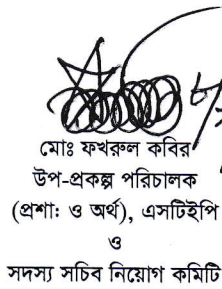 মোঃ ফখরুল কবির
উপ-প্রকল্প পরিচালক
(প্রশা: ও অর্থ), এসটিইপি
ও
সদস্য সচিব নিয়োগ কমিটি